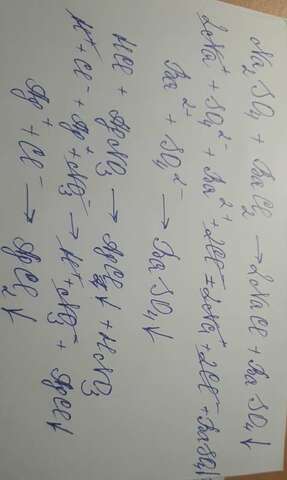 Na₂SO₄ + BaCl₂ → 2NaCl + BaSO₄↓
2Na⁺ + SO₄²⁻ + Ba²⁺ + 2Cl⁻ = 2Na⁺ + 2Cl⁻ + BaSO₄↓
Ba²⁺ + SO₄²⁻ → BaSO₄↓
HCl + AgNO₃ → AgCl↓ + HNO₃
H⁺ + Cl⁻ + Ag⁺ + NO₃⁻ → H⁺ + NO₃⁻ + AgCl↓
Ag⁺ + Cl⁻ → AgCl₂↓